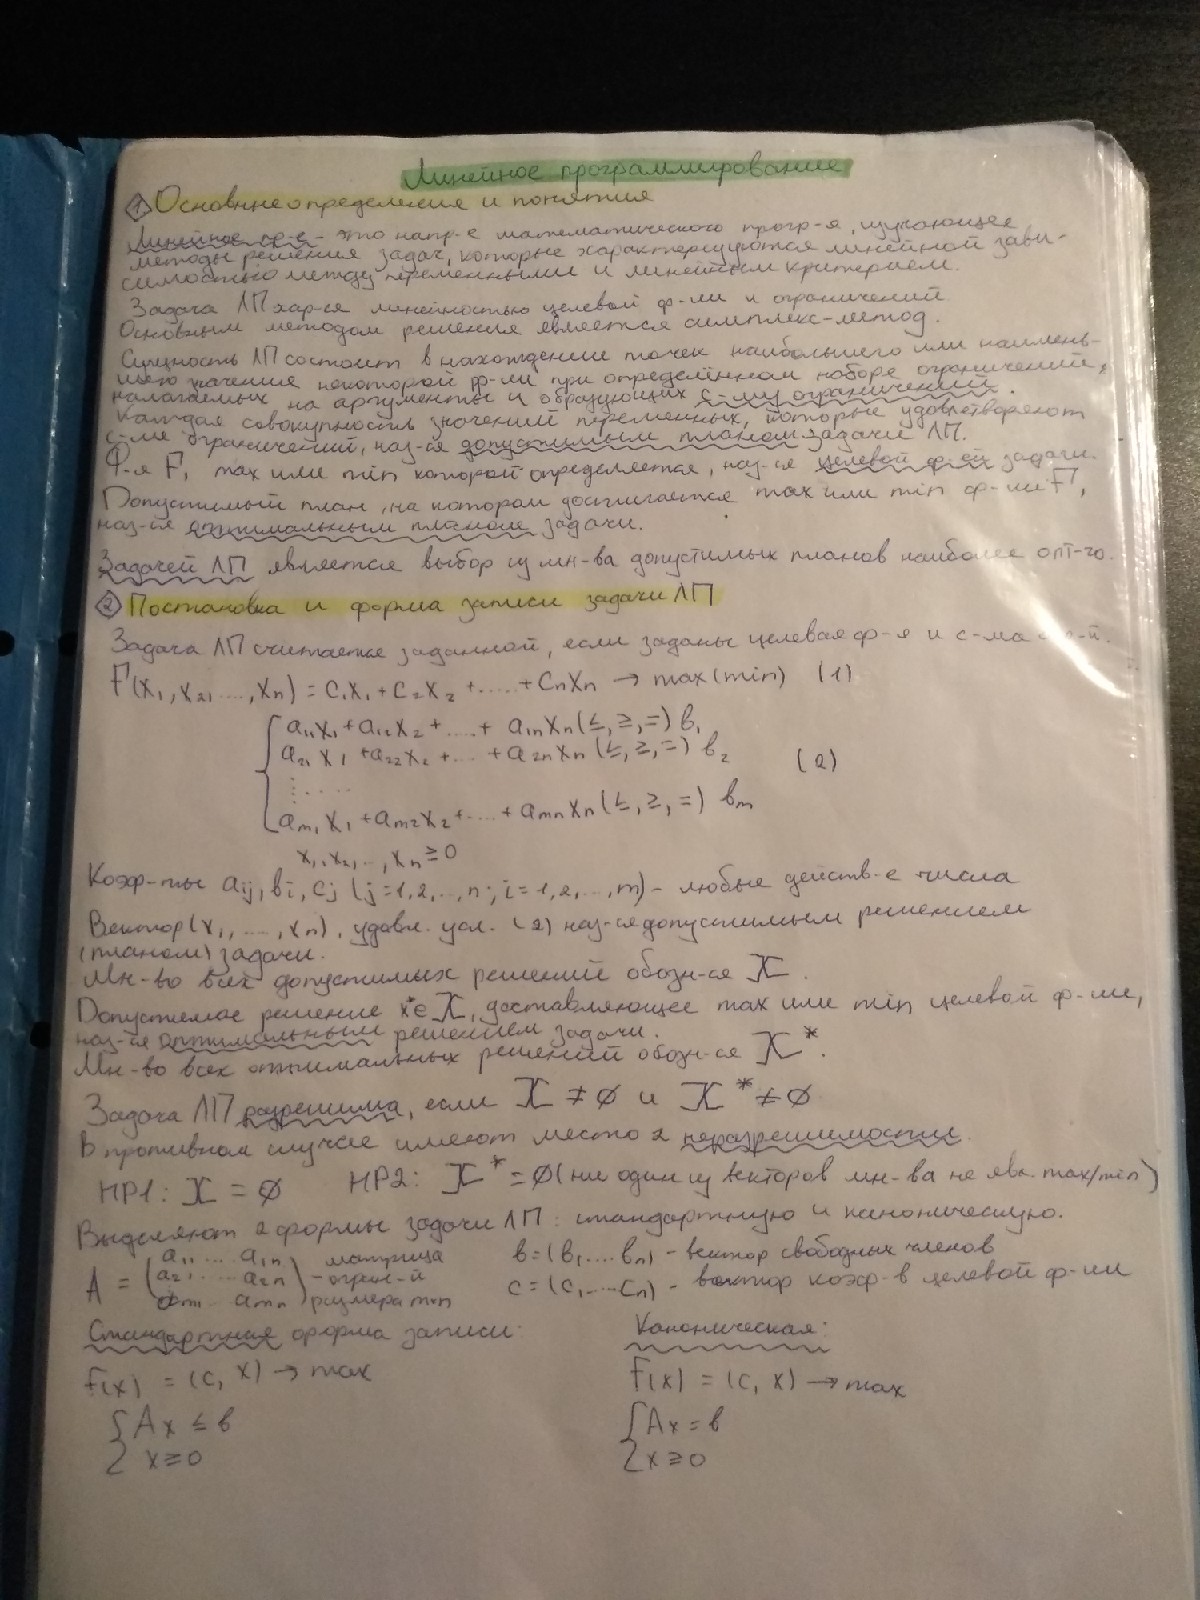 Линейное программирование
1 Основные определения и понятия
Линейное пр-е - это напр-е математического прогр-я, изучающее
методы решения задач, которые характеризуются линейной зави-
симостью между переменными и линейным критерием.
Задача ЛП хар-ся линейностью целевой ф-ии и ограничений.
Основным методом решения является симплекс-метод.
Сущность ЛП состоит в нахождении точек наибольшего или наимень-
шего значения некоторой ф-ии при определённом наборе ограничений,
налагаемых на аргументы и образующих с-му ограничений.
Каждая совокупность значений переменных, которые удовлетворяют
с-ме ограничений, наз-ся допустимым планом задачи ЛП.
Ф-я F, max или min которой определяется, наз-ся целевой ф-ей задачи.
Допустимый план, на котором достигается max или min ф-ии F,
наз-ся оптимальным планом задачи.
Задачей ЛП является выбор из мн-ва допустимых планов наиболее опт-го.
2 Постановка и форма записи задачи ЛП
Задача ЛП считается заданной, если заданы целевая ф-я и с-ма о-й.
F(x₁, x₂, ...., xₙ) = c₁x₁ + c₂x₂ + ..... + cₙxₙ → max(min) (1)
{ a₁₁x₁ + a₁₂x₂ + ..... + a₁ₙxₙ (≤, ≥, =) b₁
a₂₁x₁ + a₂₂x₂ + ... + a₂ₙxₙ (≤, ≥, =) b₂ (2)
: . . . .
aₘ₁x₁ + aₘ₂x₂ + .... + aₘₙxₙ (≤, ≥, =) bₘ
x₁, x₂, .., xₙ ≥ 0
Коэф-ты aij, bi, cj (j=1,2,..,n; i=1,2,...,m) - любые действ-е числа
Вектор (x₁, ...., xₙ), удовл. усл. (2) наз-ся допустимым решением
(планом) задачи.
Мн-во всех допустимых решений обозн-ся X.
Допустимое решение x*∈X, доставляющее max или min целевой ф-ии,
наз-ся оптимальным решением задачи.
Мн-во всех оптимальных решений обозн-ся X*.
Задача ЛП разрешима, если X ≠ ∅ и X* ≠ ∅
В противном случае имеют место 2 неразрешимости.
НР1: X = ∅ НР2: X* = ∅ (ни один из векторов мн-ва не явл. max/min)
Выделяют 2 формы задачи ЛП: стандартную и каноническую.
A = (a₁₁ ... a₁ₙ матрица b = (b₁....bₙ) - вектор свободных членов
a₂₁ ... a₂ₙ - огран-й c = (c₁...cₙ) - вектор коэф-в целевой ф-ии
aₘ₁ .. aₘₙ) размера m·n
Стандартная форма записи: Каноническая:
F(x) = (c, x) → max F(x) = (c, x) → max
{ Ax ≤ b { Ax = b
x ≥ 0 x ≥ 0